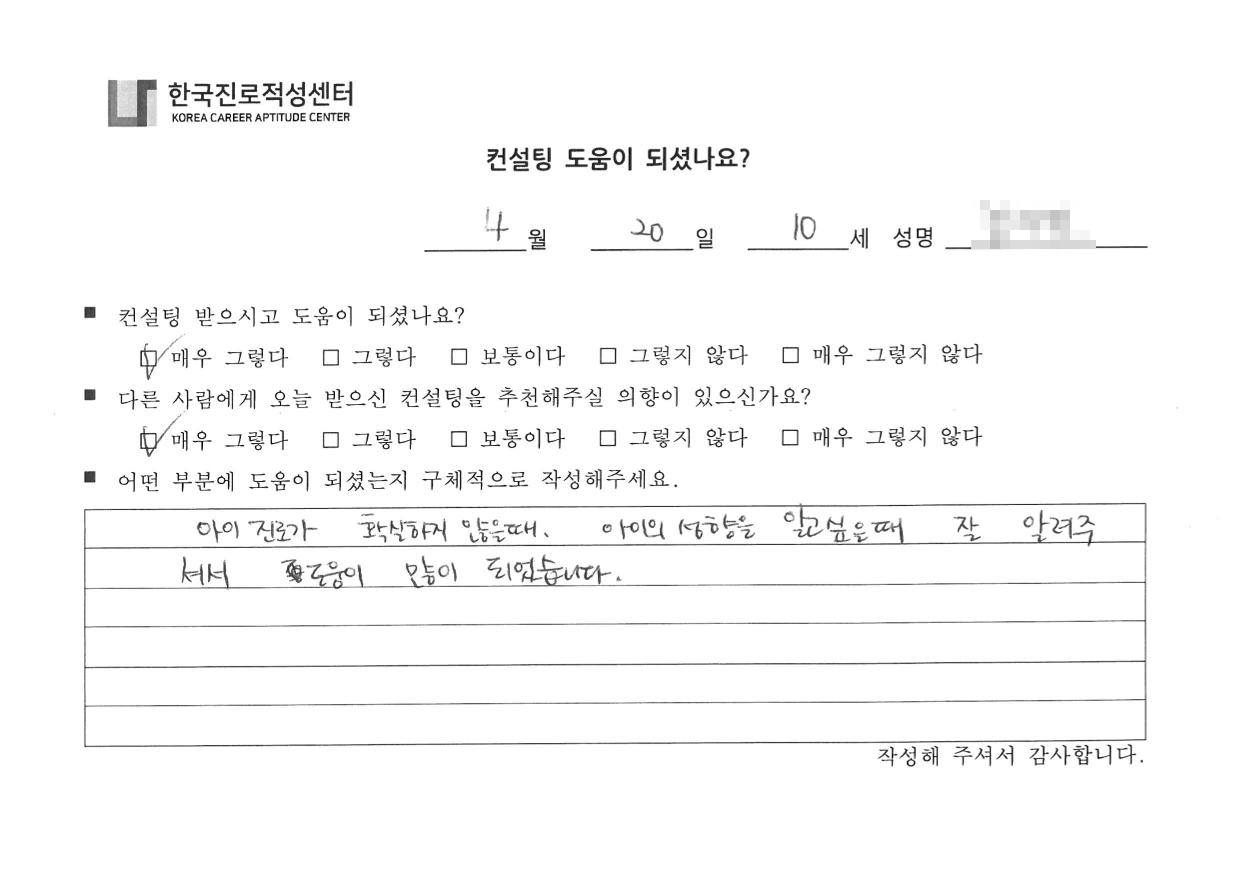 한국진로적성센터
KOREA CAREER APTITUDE CENTER
컨설팅 도움이 되셨나요?
4월 20일 10세 성명
■ 컨설팅 받으시고 도움이 되셨나요?
☑ 매우 그렇다 □ 그렇다 □ 보통이다 □ 그렇지 않다 □ 매우 그렇지 않다
■ 다른 사람에게 오늘 받으신 컨설팅을 추천해주실 의향이 있으신가요?
☑ 매우 그렇다 □ 그렇다 □ 보통이다 □ 그렇지 않다 □ 매우 그렇지 않다
■ 어떤 부분에 도움이 되셨는지 구체적으로 작성해주세요.
아이 진로가 확실하지 않을때. 아이의 성향을 알고싶은때 잘 알려주
셔서 도움이 많이 되었습니다.
작성해 주셔서 감사합니다.